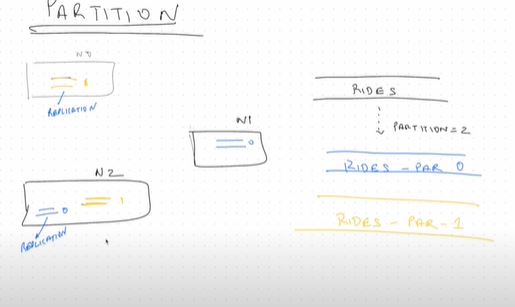 PARTITION
N0
1
REPLICATION
N1
0
N2
0
1
REPLICATION
RIDES
PARTITION=2
RIDES - PAR 0
RIDES - PAR - 1